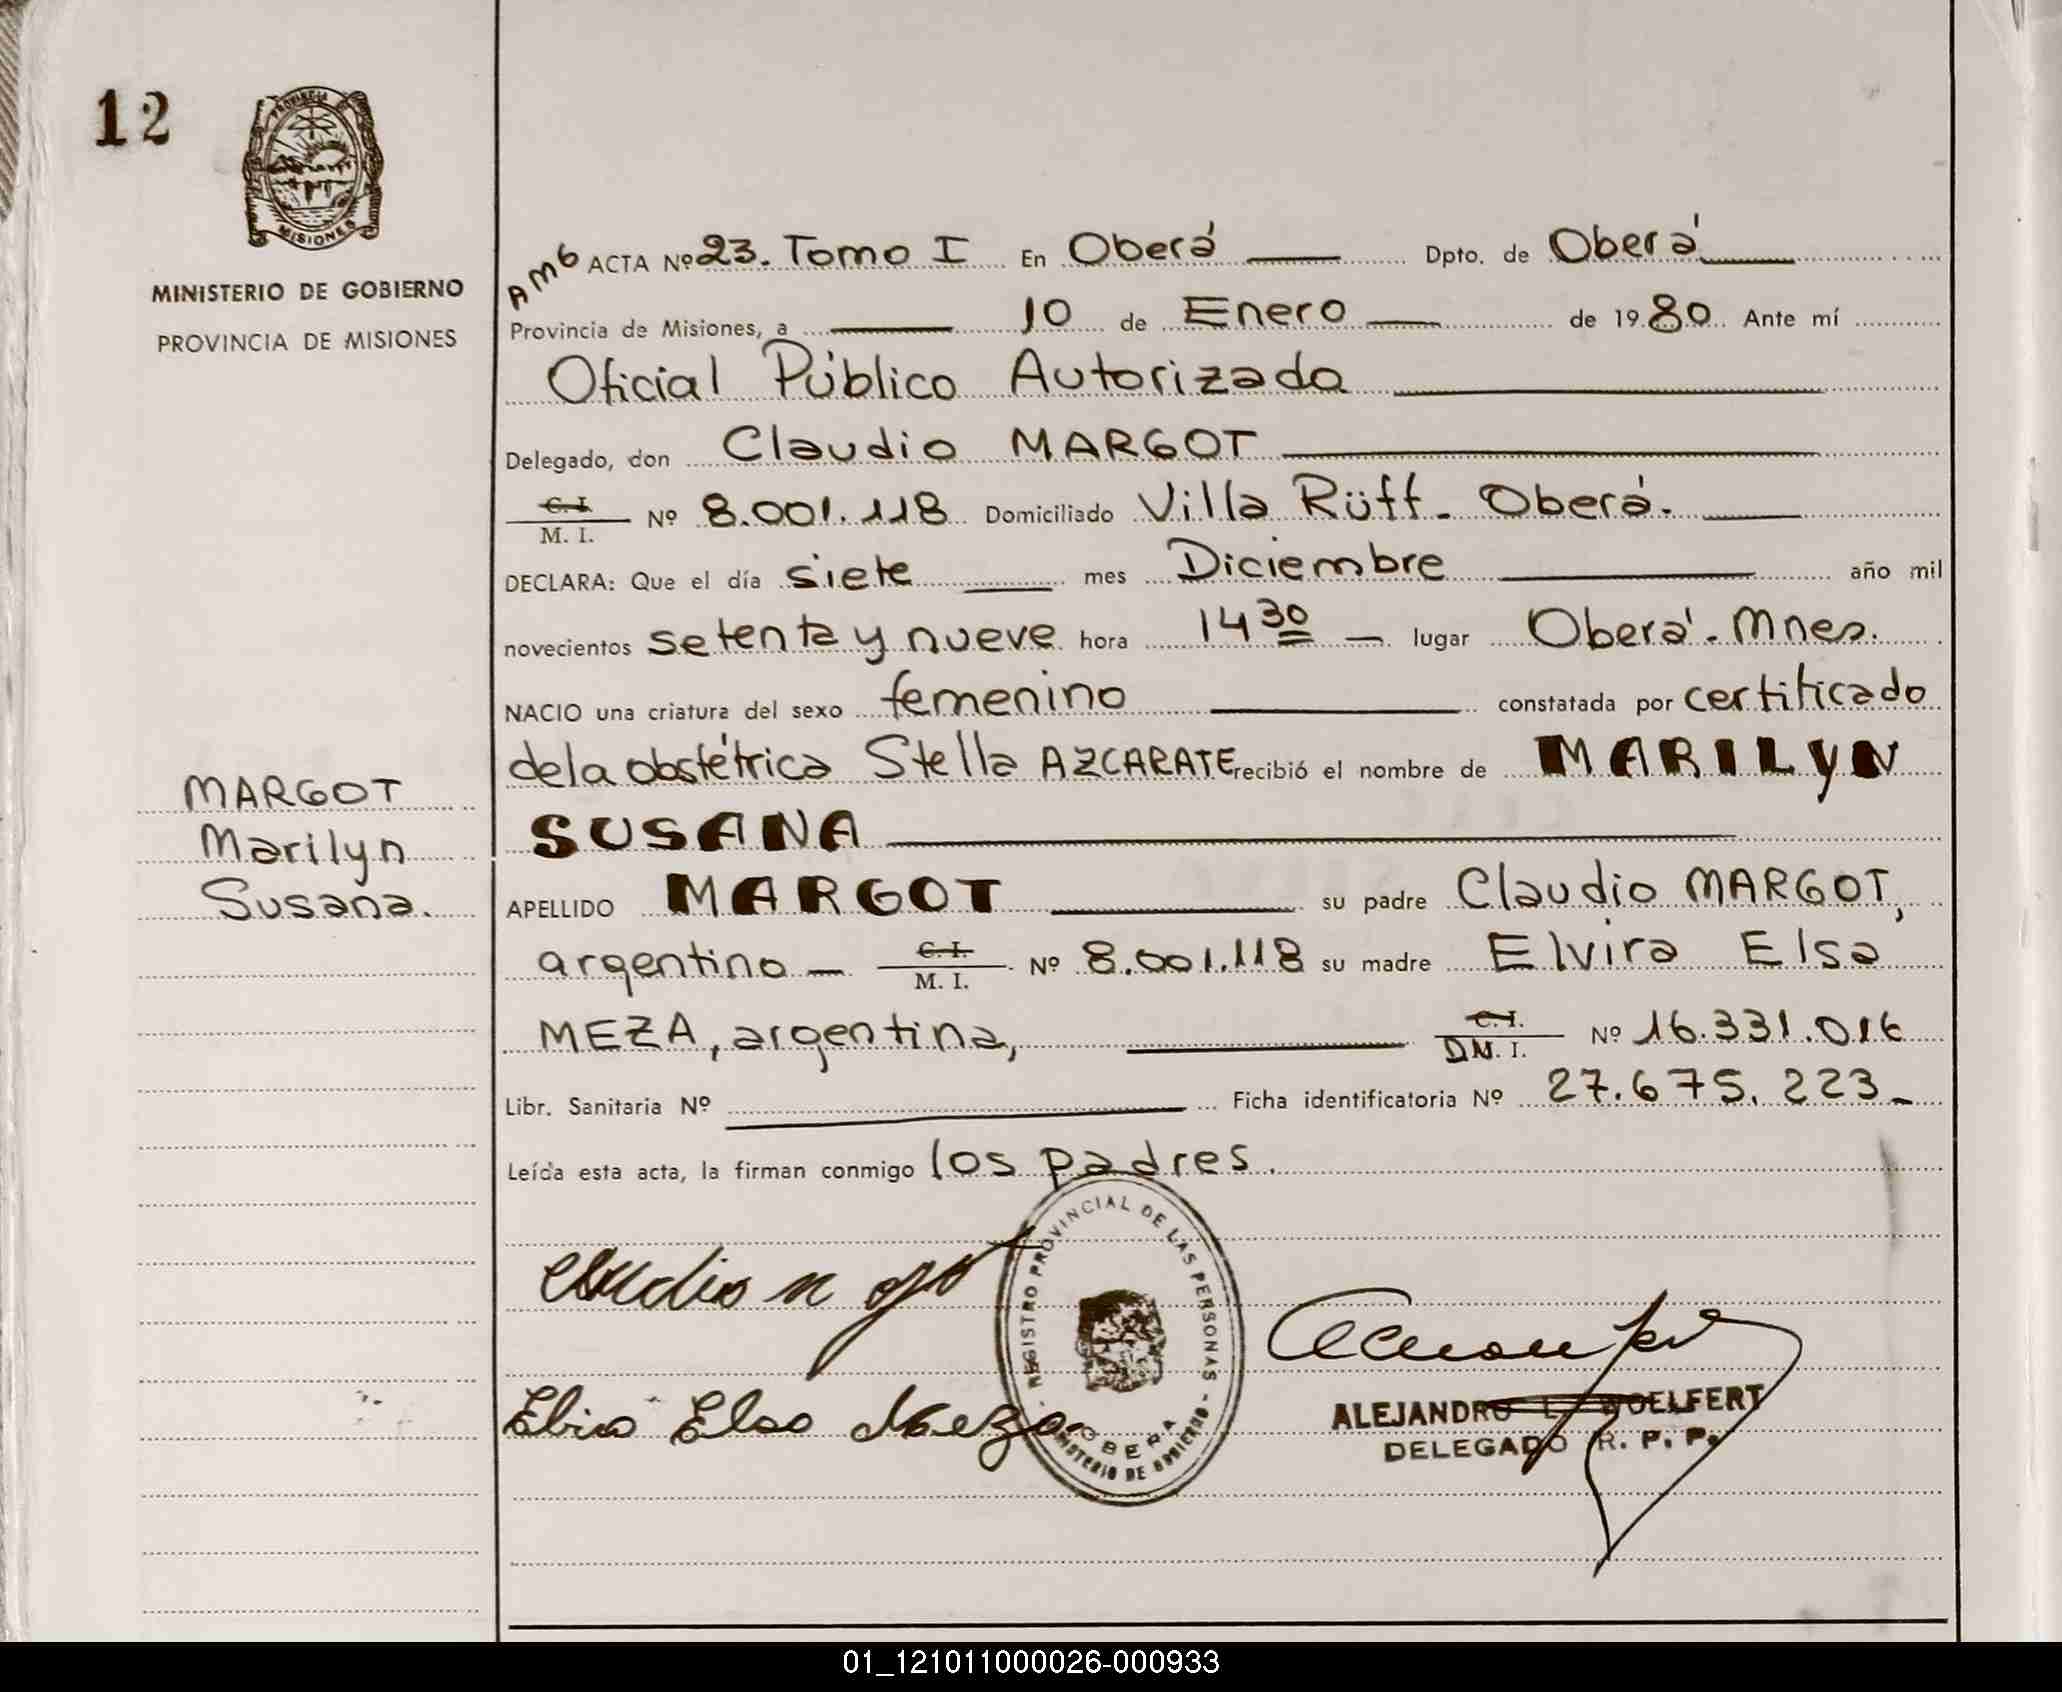 12
PROVINCIA
MISIONES
MINISTERIO DE GOBIERNO
PROVINCIA DE MISIONES
MARGOT
Marilyn
Susana.
AMб ACTA Nº 23. Tomo I En Oberá Dpto. de Oberá
Provincia de Misiones, a 10 de Enero de 1980 Ante mí
Oficial Público Autorizado
Delegado, don Claudio MARGOT
C. I.
M. I. Nº 8.001.118 Domiciliado Villa Rüff. Oberá.
DECLARA: Que el día siete mes Diciembre año mil
novecientos setenta y nueve hora 14 30 lugar Oberá. Mnes.
NACIO una criatura del sexo femenino constatada por certificado
de la obstétrica Stella AZCARATE recibió el nombre de MARILYN
SUSANA
APELLIDO MARGOT su padre Claudio MARGOT,
argentino C. I.
M. I. Nº 8.001.118 su madre Elvira Elsa
MEZA, argentina, C. I.
DM. I. Nº 16.331.016
Libr. Sanitaria Nº Ficha identificatoria Nº 27.675.223
Leída esta acta, la firman conmigo los padres.
REGISTRO PROVINCIAL DE LAS PERSONAS
OBERA
MINISTERIO DE GOBIERNO
Elsa Meza
ALEJANDRO L. WOELFERT
DELEGADO R. P. P.
01_121011000026-000933